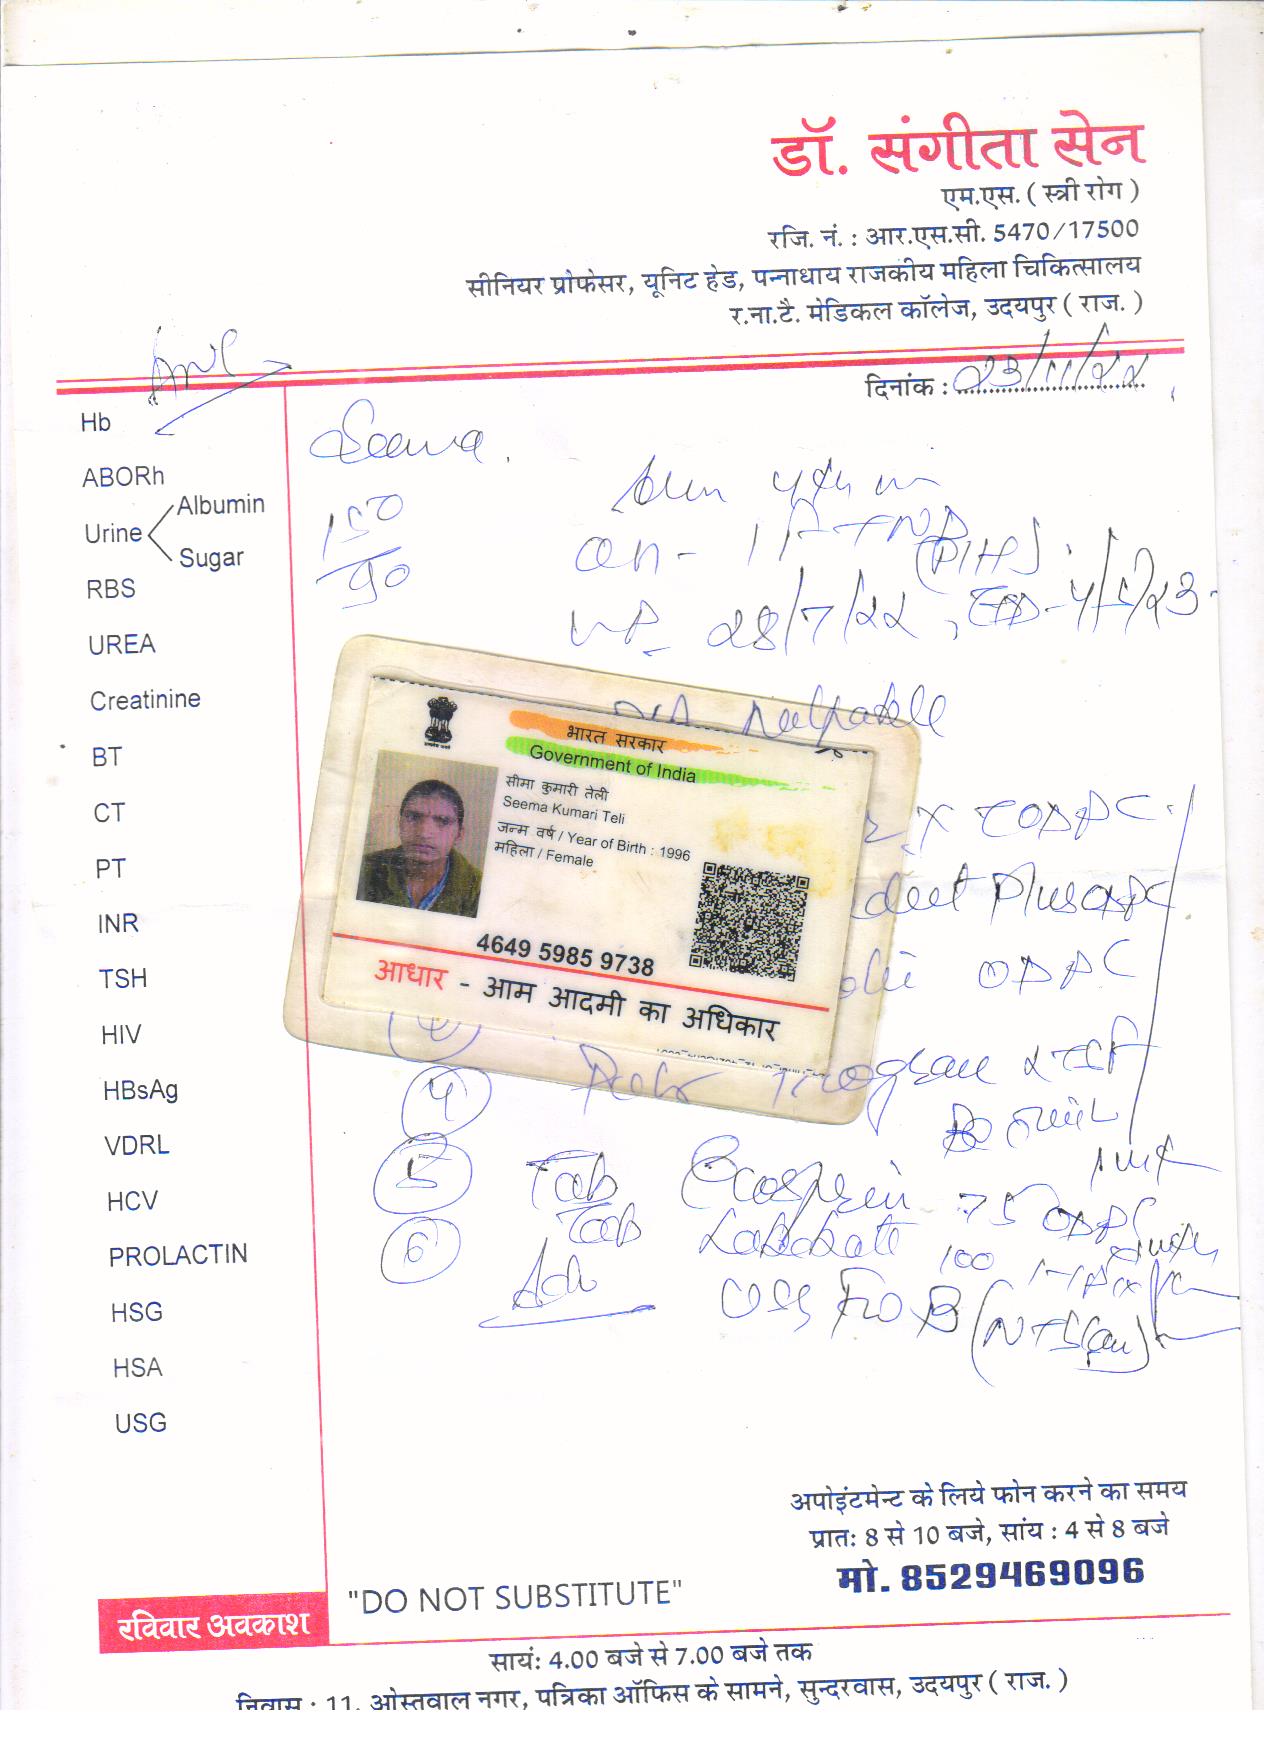 डॉ. संगीता सेन
एम.एस. ( स्त्री रोग )
रजि. नं. : आर.एस.सी. 5470/17500
सीनियर प्रोफेसर, यूनिट हेड, पन्नाधाय राजकीय महिला चिकित्सालय
र.ना.टै. मेडिकल कॉलेज, उदयपुर ( राज. )
ANC
दिनांक : 23/11/22
Hb
ABORh
Urine Albumin
Sugar
RBS
UREA
Creatinine
BT
CT
PT
INR
TSH
HIV
HBsAg
VDRL
HCV
PROLACTIN
HSG
HSA
USG
Seema
150
90
(PIH)
28/7/22, 4/5/23
palpable
भारत सरकार
Government of India
सीमा कुमारी तेली
Seema Kumari Teli
जन्म वर्ष / Year of Birth : 1996
महिला / Female
4649 5985 9738
आधार - आम आदमी का अधिकार
x TODPC
Plus ODPC
ODPC
4
5 Tab Ecosprin 75 ODPC
6 Tab Labebate 100
Adv USG F.O.B (NT Scan)
अपोइंटमेन्ट के लिये फोन करने का समय
प्रातः 8 से 10 बजे, सांय : 4 से 8 बजे
मो. 8529469096
"DO NOT SUBSTITUTE"
रविवार अवकाश
सायं: 4.00 बजे से 7.00 बजे तक
निवास : 11, ओस्तवाल नगर, पत्रिका ऑफिस के सामने, सुन्दरवास, उदयपुर ( राज. )